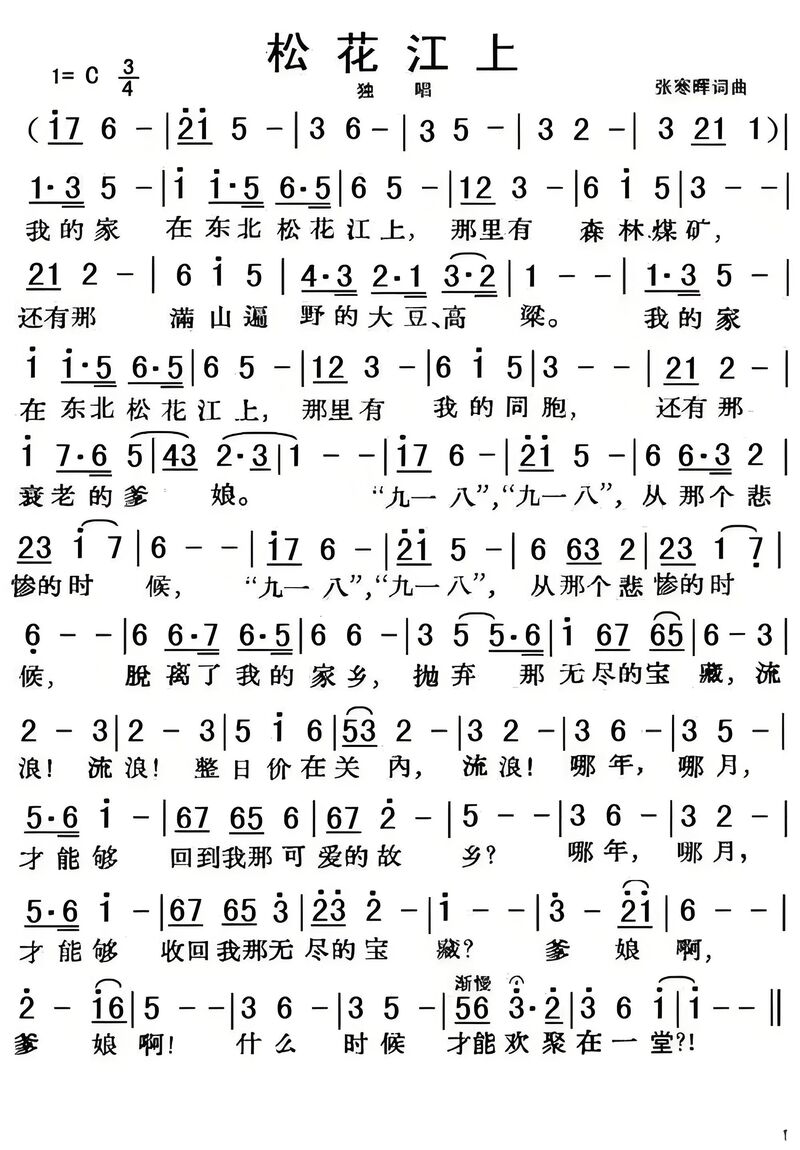 松花江上
1= C 3/4 独 唱 张寒晖词曲
( i̇7 6 - | 2̇i̇ 5 - | 3 6 - | 3 5 - | 3 2 - | 3 21 1) |
1·3 5 - | i̇ i̇·5 6·5 | 6 5 - | 12 3 - | 6 i̇ 5 | 3 - - |
我的家 在东北松花江上, 那里有 森林煤矿,
21 2 - | 6 i̇ 5 | 4·3 2·1 3·2 | 1 - - | 1·3 5 - |
还有那 满山遍野的大豆、高 粱。 我的家
i̇ i̇·5 6·5 | 6 5 - | 12 3 - | 6 i̇ 5 | 3 - - | 21 2 - |
在东北松花江上, 那里有 我的同胞, 还有那
i̇ 7·6 5 | 43 2·3 | 1 - - | i̇7 6 - | 2̇i̇ 5 - | 6 6·3 2 |
衰老的爹 娘。 “九一八”,“九一八”, 从那个悲
23 i̇ 7 | 6 - - | i̇7 6 - | 2̇i̇ 5 - | 6 63 2 | 23 1 7̣ |
惨的时 候, “九一八”,“九一八”, 从那个悲惨的时
6̣ - - | 6 6·7 6·5 | 6 6 - | 3 5 5·6 | i̇ 67 65 | 6 - 3 |
候, 脱离了我的家乡, 抛弃 那无尽的宝藏,流
2 - 3 | 2 - 3 | 5 i̇ 6 | 53 2 - | 3 2 - | 3 6 - | 3 5 - |
浪! 流浪! 整日价在关 内, 流浪! 哪年, 哪月,
5·6 i̇ - | 67 65 6 | 67 2̇ - | 5 - - | 3 6 - | 3 5 - |
才能够 回到我那可爱的故 乡? 哪年, 哪月,
5·6 i̇ - | 67 65 3̇ | 2̇3̇ 2̇ - | i̇ - - | 3̇ - 2̇i̇ | 6 - - |
才能够 收回我那无尽的宝 藏? 爹 娘啊,
2̇ - i̇6 | 5 - - | 3 6 - | 3 5 - | 56 3̇·2̇ | 3̇ 6 i̇ | i̇ - - ‖
渐慢
爹 娘啊! 什么 时候 才能欢聚在一堂?!
1